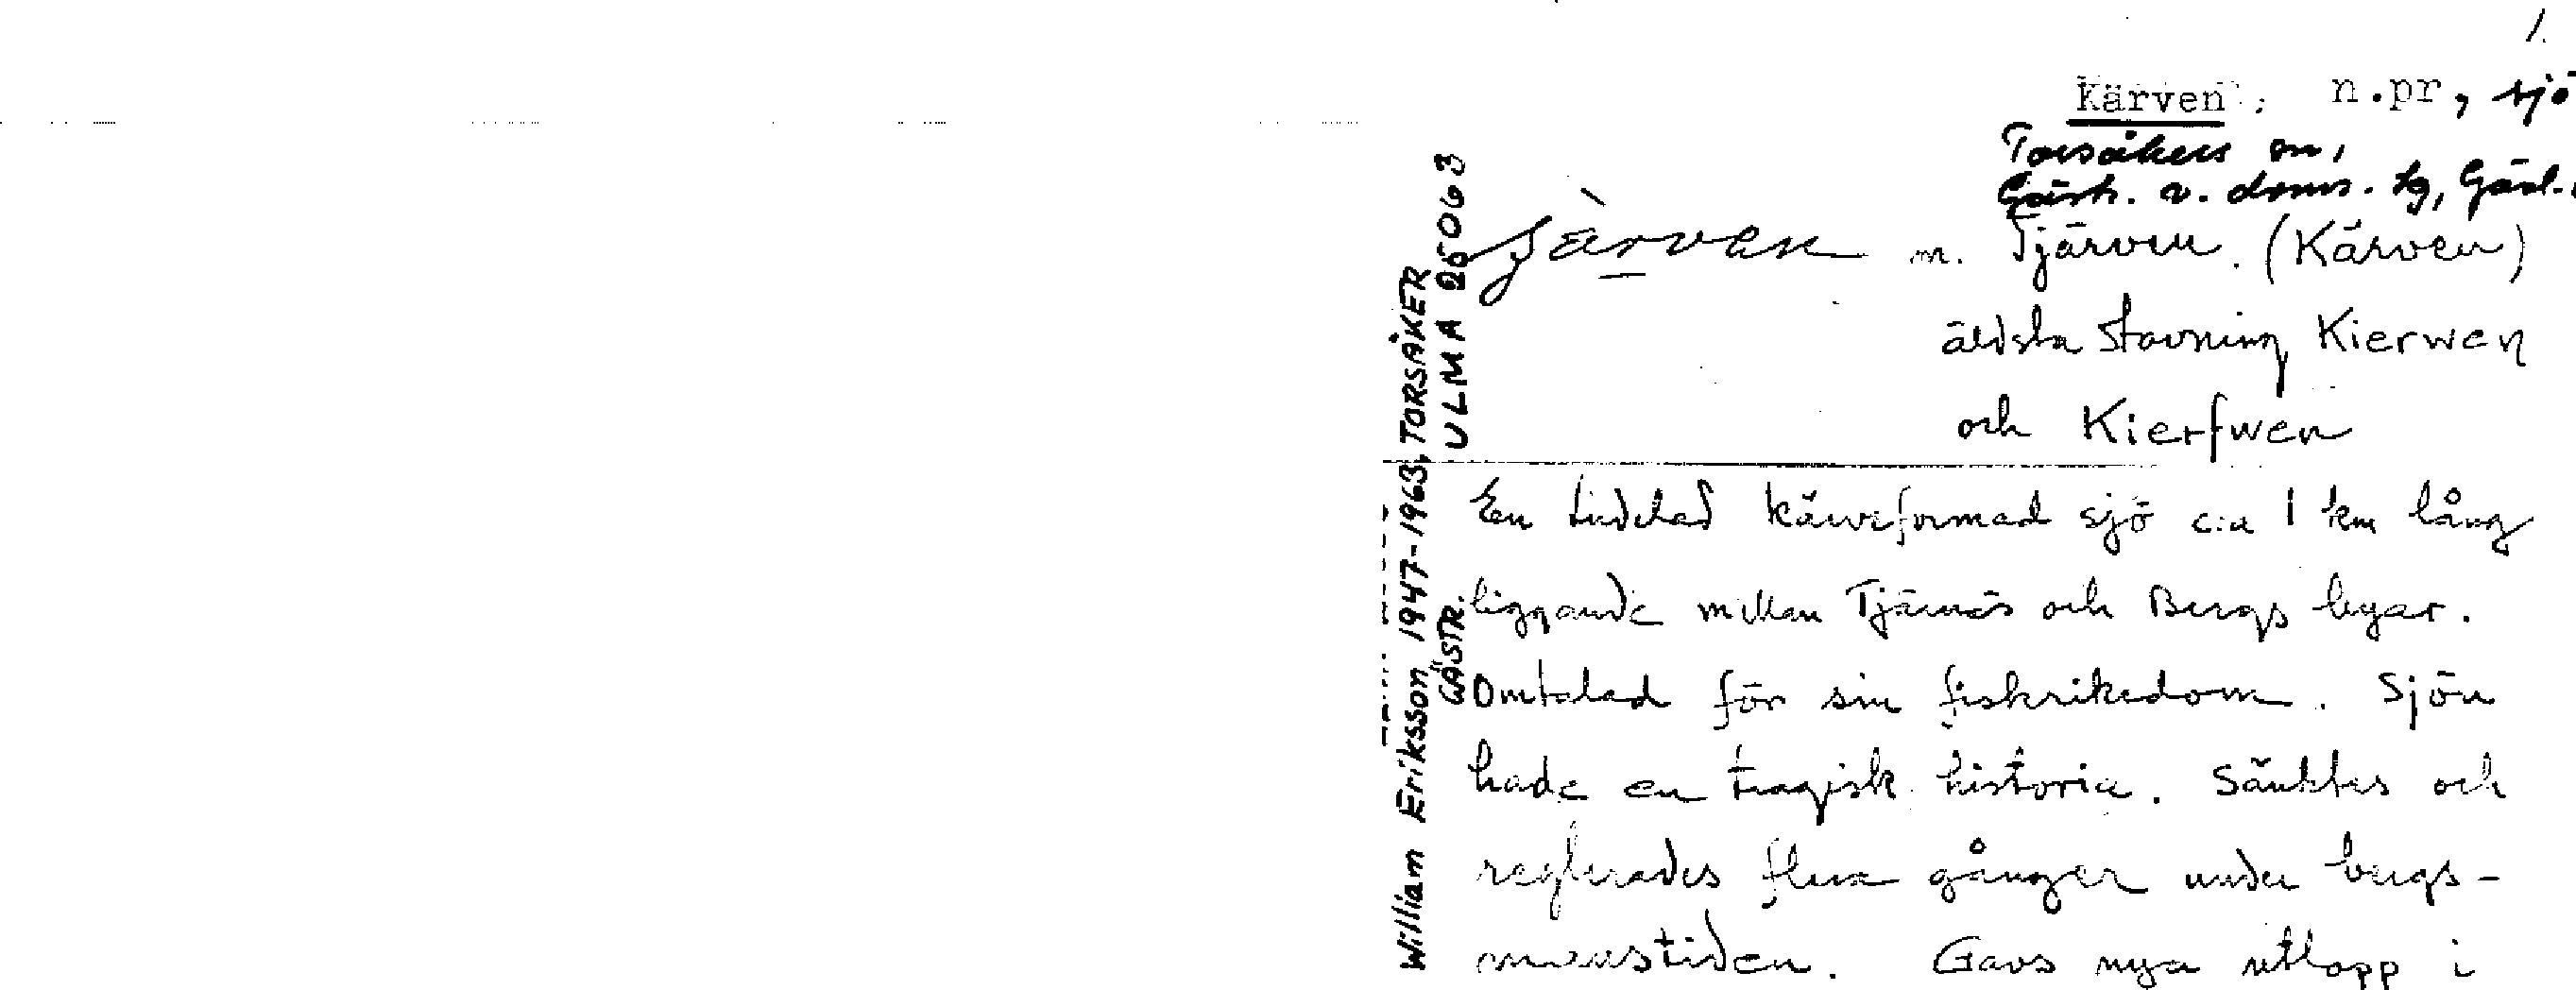 1.
Kärven, n.pr, sjö
Torsåkers sn,
Gästr. v. doms. tg, Gävl.
m. Tjärven. (Kärven)
äldsta stavning Kierwen
och Kierfwen
En tudelad kärvformad sjö c:a 1 km lång
liggande mellan Tjärnäs och Bergs byar.
Omtalad för sin fiskrikedom. Sjön
hade en tragisk historia. Sänktes och
reglerades flera gånger under bergs-
manstiden. Gavs nya utlopp i
William Eriksson 1947-1963, TORSÅKER
GÄSTR. ULMA 25063